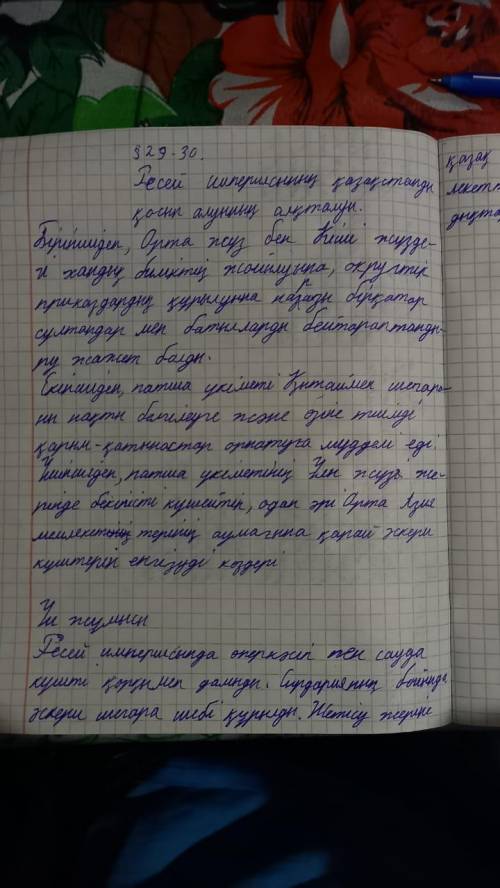 §29-30.
Ресей империясының қазақстанды
қосып алуының аяқталуы.
Біріншіден, Орта жүз бен Кіші жүзде-
гі хандық биліктің жойылуына, округтік
приказдардың құрылуына наразы бірқатар
сұлтандар мен батырларды бейтараптанды-
ру қажет болды.
Екіншіден, патша үкіметі Қытаймен шегара-
ны нақты белгілеуге және өзіне тиімді
қарым-қатынастар орнатуға мүдделі еді.
Үшіншіден, патша үкіметінің Ұлы жүз же-
рінде бекіністі күшейтіп, одан әрі Орта Азия
мемлекеттерінің аумағына қарай әскери
күштерін енгізуді көздері
Үй жұмысы
Ресей империясында өнеркәсіп пен сауда
күшті қарқынмен дамыды. Сырдарияның бойында
әскери шегара шебі құрылды. Жетісу жеріне
қазақ
лекетт
дықта